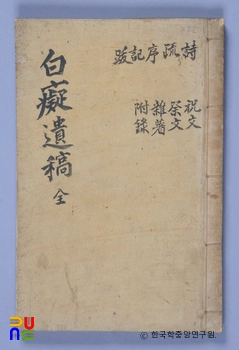 詩疏序記跋
祝文
祭文
雜著
附錄
白癡遺稿 全
ⓒ 한국학중앙연구원.